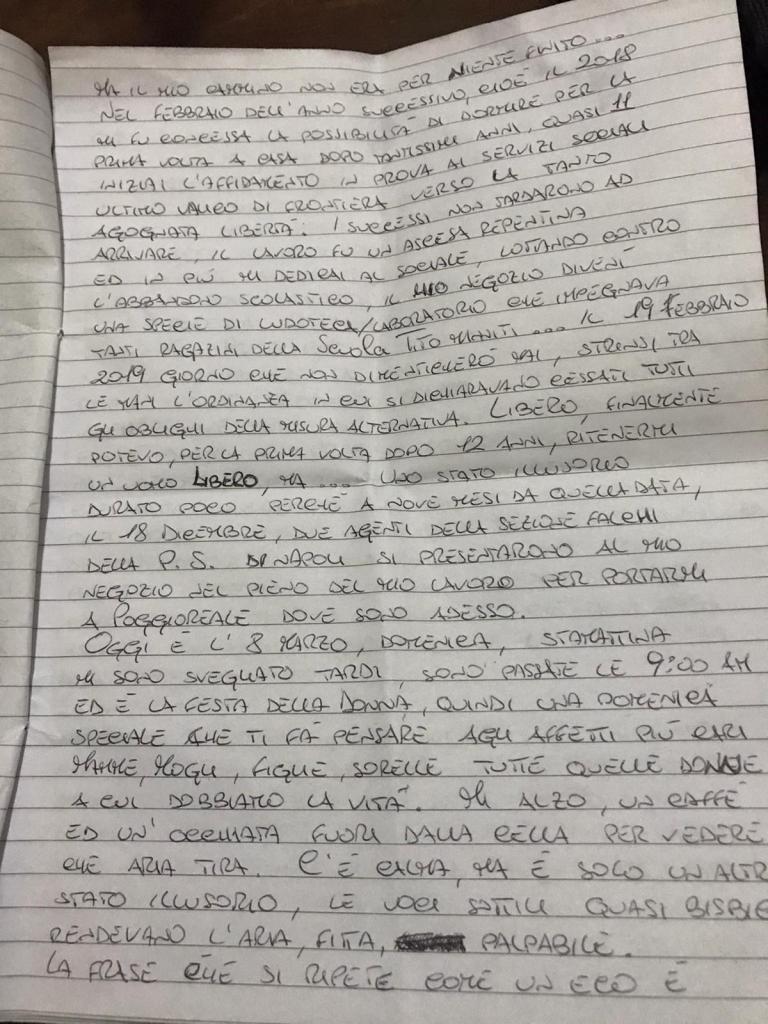 MA IL MIO CAMMINO NON ERA PER NIENTE FINITO ...
NEL FEBBRAIO DELL'ANNO SUCCESSIVO, CIOÈ IL 2018
MI FU CONCESSA LA POSSIBILITÀ DI DORMIRE PER LA
PRIMA VOLTA A CASA DOPO TANTISSIMI ANNI, QUASI 11
INIZIAI L'AFFIDAMENTO IN PROVA AI SERVIZI SOCIALI
ULTIMO VALICO DI FRONTIERA VERSO LA TANTO
AGOGNATA LIBERTÀ. I SUCCESSI NON TARDARONO AD
ARRIVARE, IL LAVORO FU UN ASCESA REPENTINA
ED IN PIÙ MI DEDICAI AL SOCIALE, LOTTANDO CONTRO
L'ABBANDONO SCOLASTICO, IL MIO NEGOZIO DIVENÌ
UNA SPECIE DI LUDOTECA/LABORATORIO CHE IMPEGNAVA
TANTI RAGAZZINI DELLA SCUOLA TITO MINNITI ... IL 19 FEBBRAIO
2019 GIORNO CHE NON DIMENTICHERÒ MAI, STRINSI TRA
LE MANI L'ORDINANZA IN CUI SI DICHIARAVANO CESSATI TUTTI
GLI OBLIGHI DELLA MISURA ALTERNATIVA. LIBERO, FINALMENTE
POTEVO, PER LA PRIMA VOLTA DOPO 12 ANNI, RITENERMI
UN UOMO LIBERO, MA ... UNO STATO ILLUSORIO
DURATO POCO PERCHÈ A NOVE MESI DA QUELLA DATA,
IL 18 DICEMBRE, DUE AGENTI DELLA SEZIONE FALCHI
DELLA P.S. DI NAPOLI SI PRESENTARONO AL MIO
NEGOZIO NEL PIENO DEL MIO LAVORO PER PORTARMI
A POGGIOREALE DOVE SONO ADESSO.
OGGI È L'8 MARZO, DOMENICA, STAMATTINA
MI SONO SVEGLIATO TARDI, SONO PASSATE LE 9:00 AM
ED È LA FESTA DELLA DONNA, QUINDI UNA DOMENICA
SPECIALE CHE TI FÀ PENSARE AGLI AFFETTI PIÙ CARI
MAMME, MOGLI, FIGLIE, SORELLE TUTTE QUELLE DONNE
A CUI DOBBIAMO LA VITA. MI ALZO, UN CAFFÈ
ED UN'OCCHIATA FUORI DALLA CELLA PER VEDERE
CHE ARIA TIRA. C'È CALMA, MA È SOLO UN ALTR
STATO ILLUSORIO, LE VOCI SOTTILI QUASI BISBIG
RENDEVANO L'ARIA, FITTA, PALPABILE.
LA FRASE CHE SI RIPETE COME UN ECO È